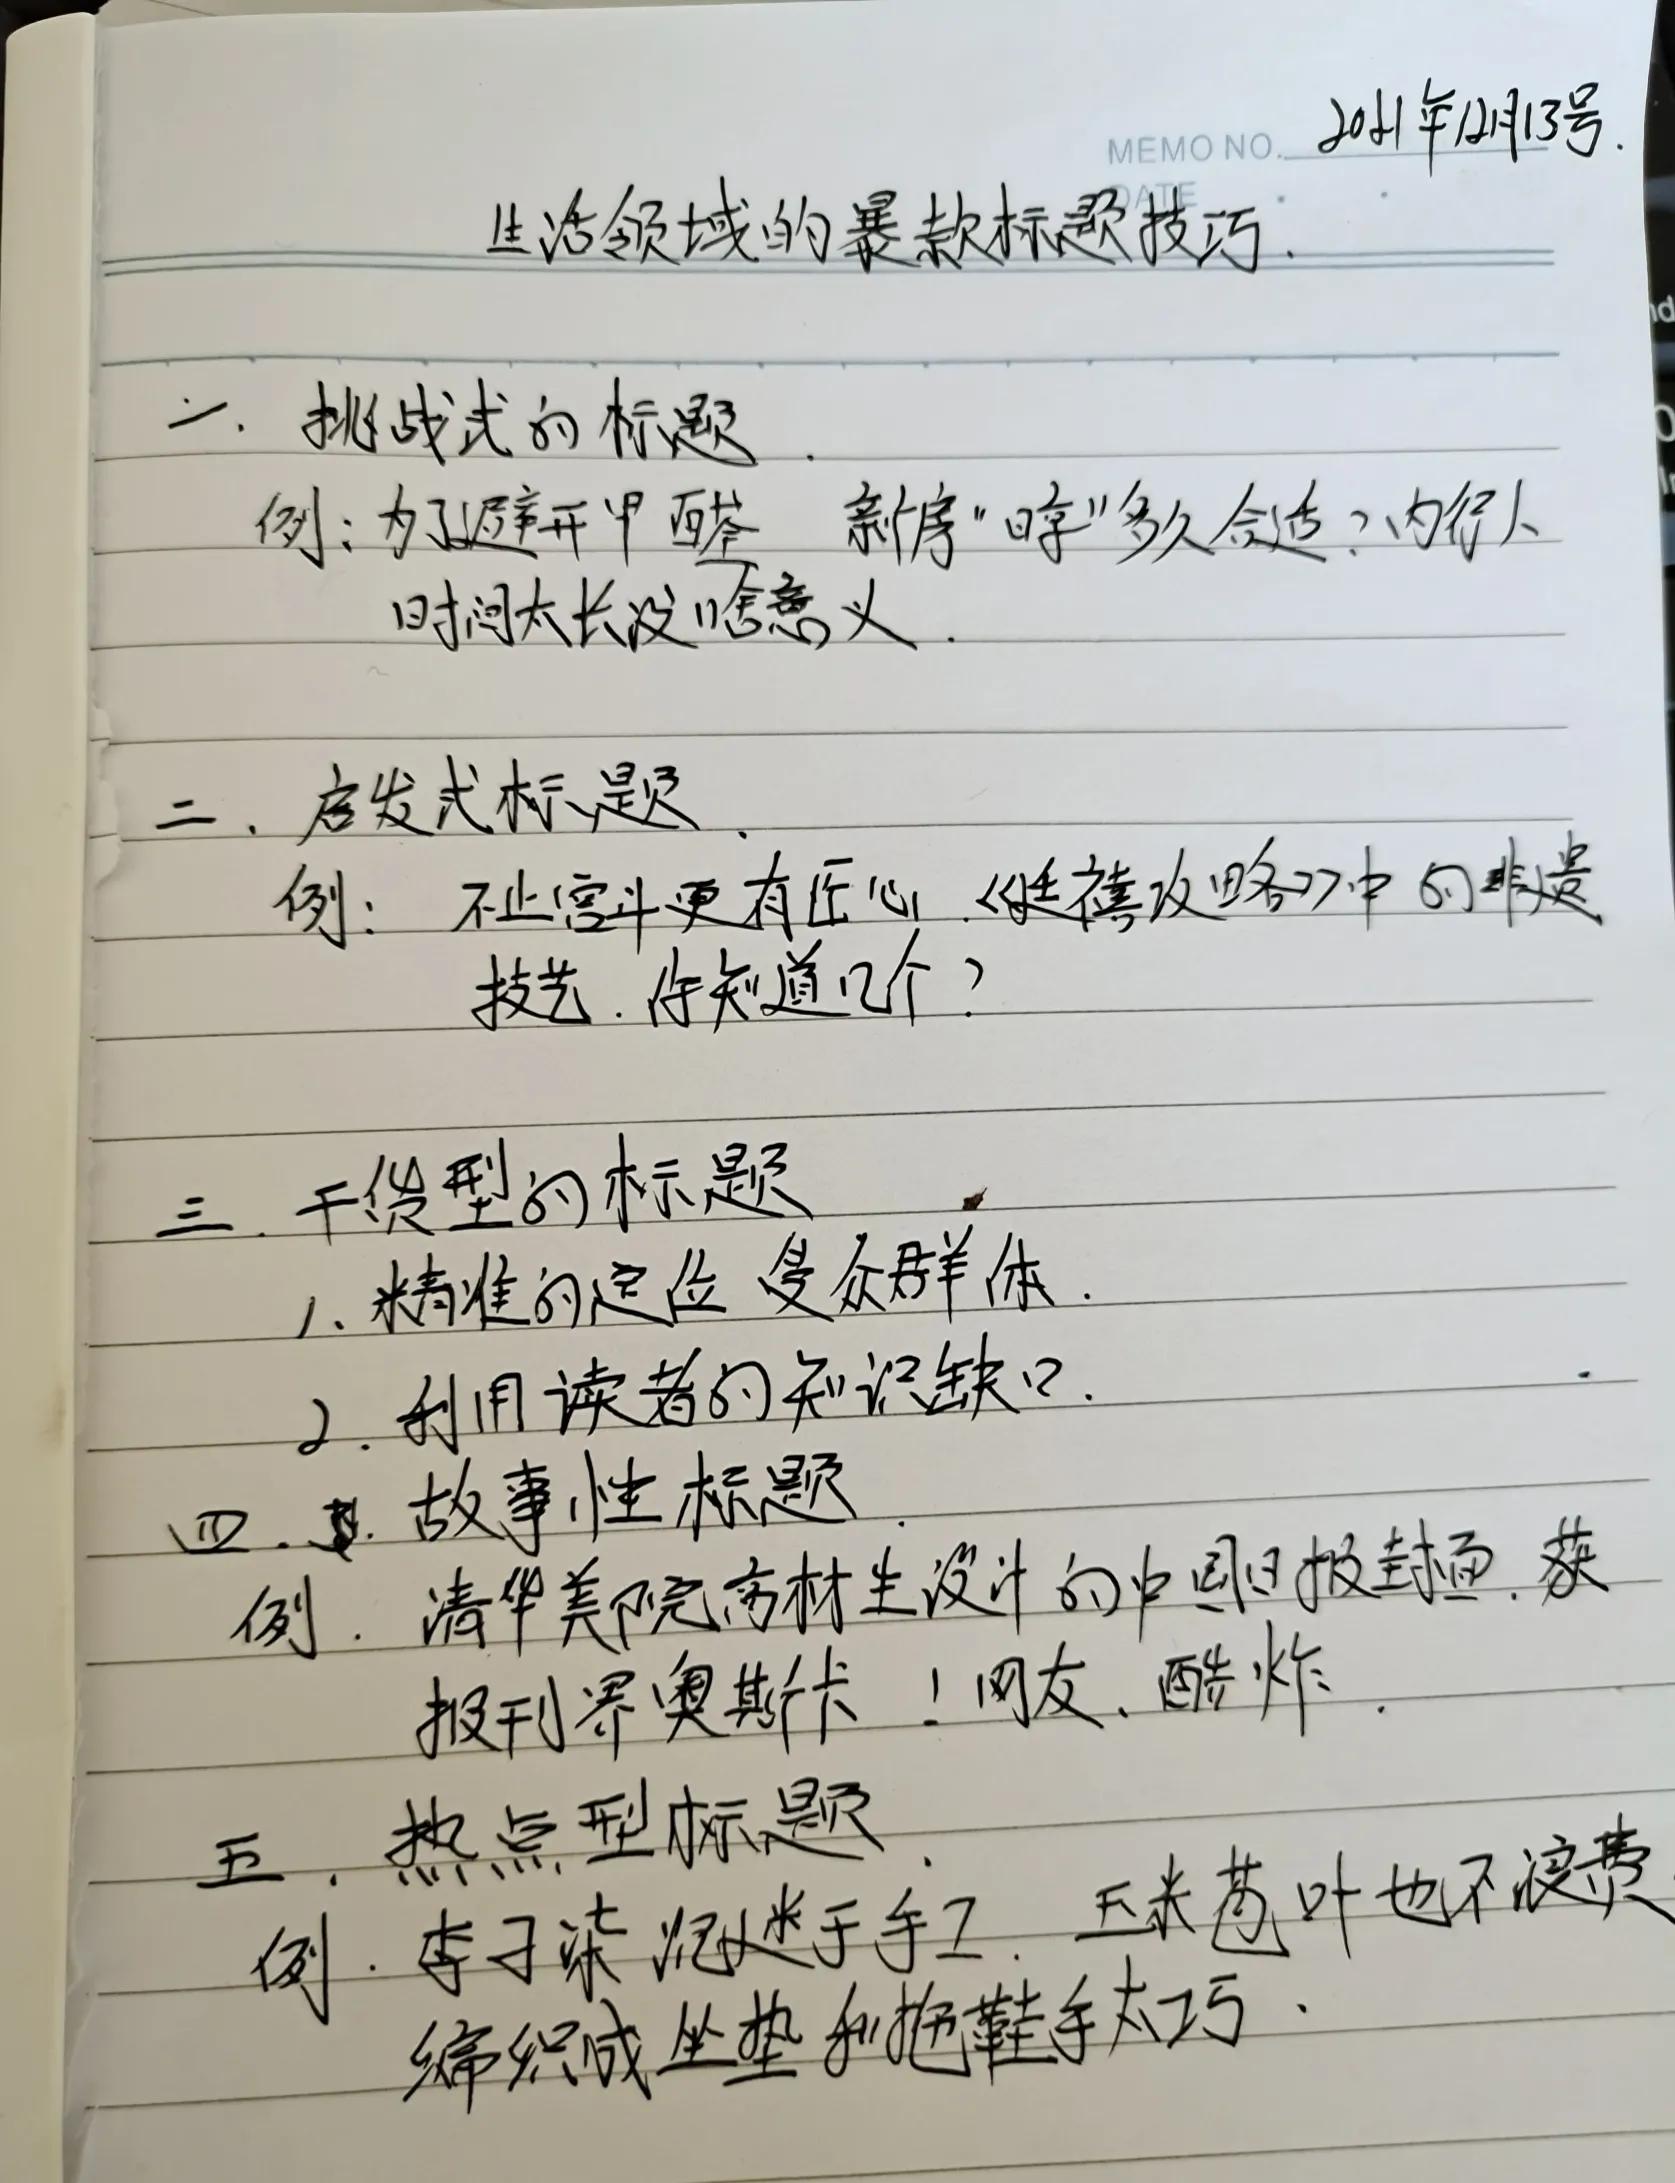 2021年12月13号.
MEMO NO.
DATE
生活领域的暴款标题技巧.
一. 挑战式的标题.
例:为了避开甲醛 新房"晾"多久合适?内行人
时间太长没啥意义.
二. 启发式标题.
例: 不止宫斗更有匠心.《延禧攻略》中的非遗
技艺.你知道几个?
三. 干货型的标题
1. 精准的定位 受众群体.
2. 利用读者的知识缺口.
四. 故事性标题.
例. 清华美院高材生设计的中国日报封面.获
报刊界奥斯卡!网友、酷炸.
五. 热点型标题.
例. 李子柒 于手工. 玉米苞叶也不浪费
编织成坐垫和拖鞋手太巧.